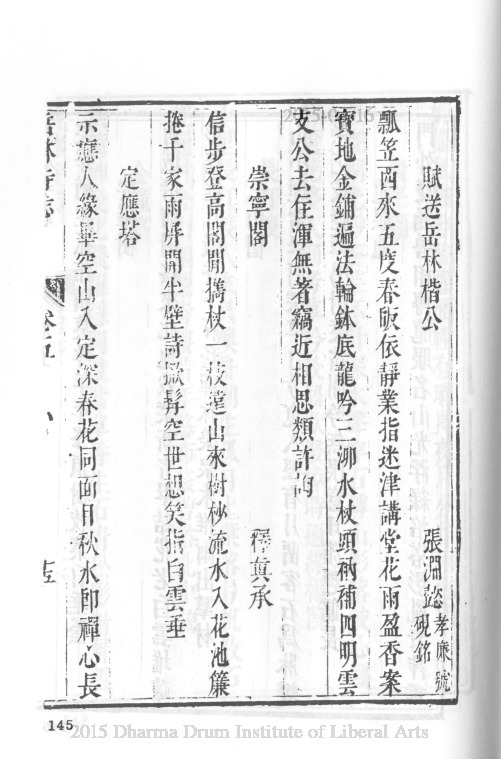 賦送岳林楷公 張淵懿 孝廉號硯銘
瓢笠西來五度春皈依靜業指迷津講堂花雨盈香案
寶地金鋪遍法輪鉢底龍吟三泖水杖頭衲補四明雲
支公去住渾無著竊近相思類許詢
崇寧閣 釋真承
信步登高閣閒攜杖一枝遠山來樹杪流水入花池簾
捲千家雨屏開半壁詩掀髯空世想笑指白雲垂
定應塔
示應人緣畢空山入定深春花同面目秋水即禪心長
岳林寺志 卷五
145
2015 Dharma Drum Institute of Liberal Arts